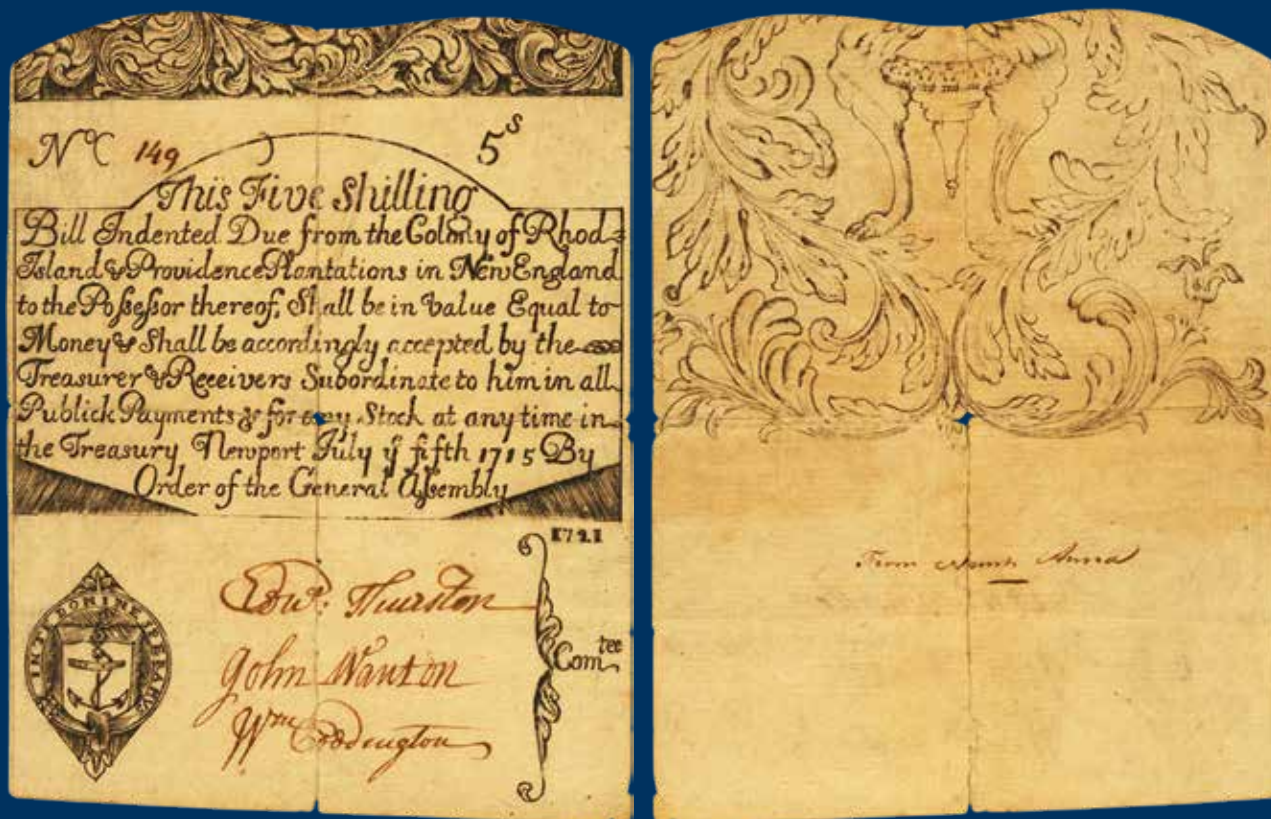 No 149 5s
This Five Shilling
Bill Indented Due from the Colony of Rhod=
Island & Providence Plantations in New England
to the Possessor thereof, Shall be in value Equal to
Money & Shall be accordingly accepted by the
Treasurer & Receivers Subordinate to him in all
Publick Payments & for any Stock at any time in
the Treasury Newport July ye fifth 1715 By
Order of the General Assembly
1721
IN TE DOMINE SPERAMUS
Edwd. Thurston
John Wanton
Comtee
Wm Coddington
From Aunt Anna